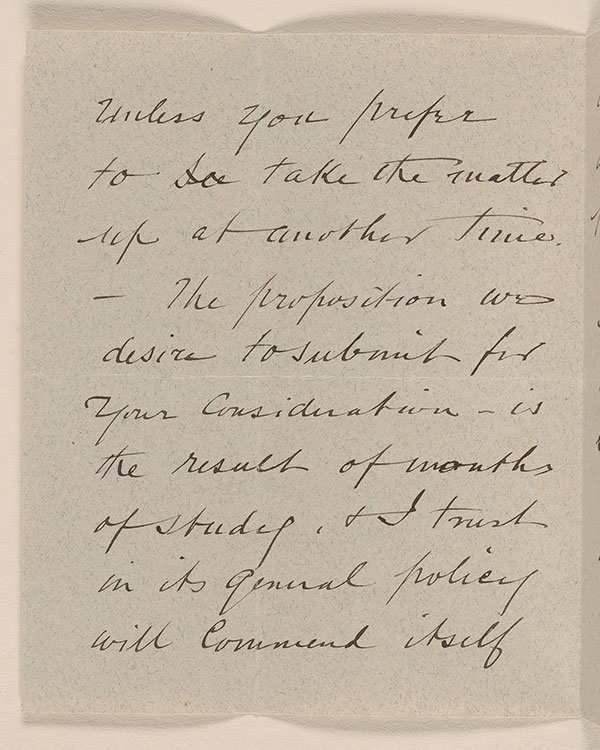 Unless you prefer
to take the matter
up at another time.
— The proposition we
desire to submit for
your consideration – is
the result of months
of study, & I trust
in its general policy
will commend itself